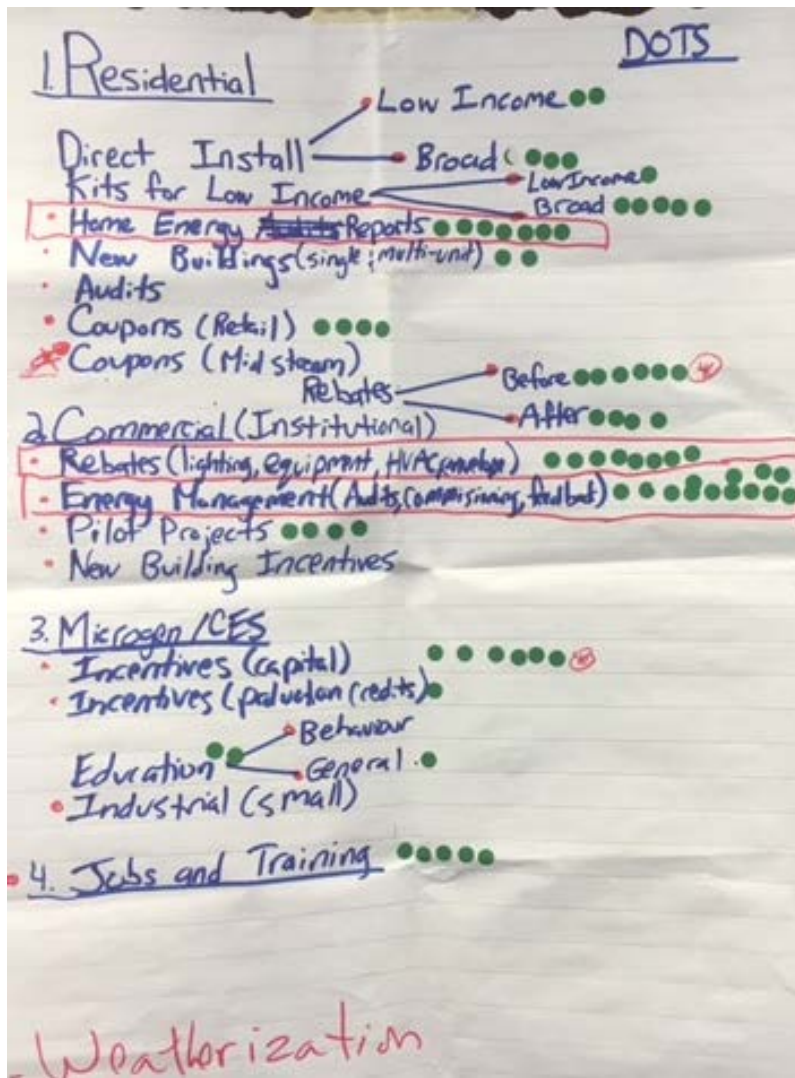 DOTS
1. Residential
Low Income
Direct Install
Broad
Kits for Low Income
Low Income
Broad
Home Energy Reports
New Buildings (single; multi-unit)
Audits
Coupons (Retail)
Coupons (Midstream)
Rebates
Before
After
2. Commercial (Institutional)
Rebates (lighting, equipment, HVAC, envelope)
Energy Management (Audits, Commpisinning, feedback)
Pilot Projects
New Building Incentives
3. Microgen/CES
Incentives (capital)
Incentives (production credits)
Behaviour
Education
General
Industrial (small)
4. Jobs and Training
Weatherization